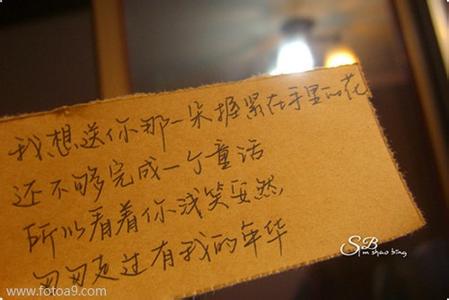 我想送你那一朵握紧在手里的花
还不够完成一个童话
所以看着你浅笑安然,
匆匆走过有我的年华
SB
m shao bing
www.fotoa9.com